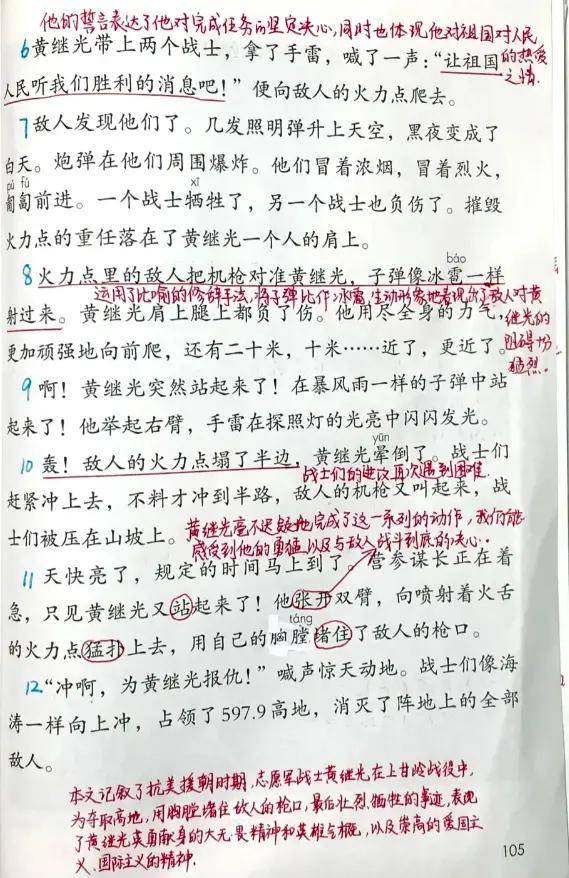 他的誓言表达了他对完成任务的坚定决心,同时也体现他对祖国对人民
的热爱
之情.
6黄继光带上两个战士，拿了手雷，喊了一声：“让祖国
人民听我们胜利的消息吧！”便向敌人的火力点爬去。
7敌人发现他们了。几发照明弹升上天空，黑夜变成了
白天。炮弹在他们周围爆炸。他们冒着浓烟，冒着烈火，
pú fú
xī
匍匐前进。一个战士牺牲了，另一个战士也负伤了。摧毁
火力点的重任落在了黄继光一个人的肩上。
báo
8火力点里的敌人把机枪对准黄继光，子弹像冰雹一样
运用了比喻的修辞手法,将子弹比作冰雹,生动形象地表现出了敌人对黄
继光的
阻碍十分
猛烈.
射过来。黄继光肩上腿上都负了伤。他用尽全身的力气，
更加顽强地向前爬，还有二十米，十米……近了，更近了。
9啊！黄继光突然站起来了！在暴风雨一样的子弹中站
起来了！他举起右臂，手雷在探照灯的光亮中闪闪发光。
yūn
10轰！敌人的火力点塌了半边，黄继光晕倒了。战士们
战士们的进攻再次遇到困难.
赶紧冲上去，不料才冲到半路，敌人的机枪又叫起来，战
士们被压在山坡上。
黄继光毫不迟疑地完成了这一系列的动作,我们能
感受到他的勇猛以及与敌人战斗到底的决心.
11天快亮了，规定的时间马上到了。营参谋长正在着
急，只见黄继光又站起来了！他张开双臂，向喷射着火舌
táng
的火力点猛扑上去，用自己的胸膛堵住了敌人的枪口。
12“冲啊，为黄继光报仇！”喊声惊天动地。战士们像海
涛一样向上冲，占领了597.9高地，消灭了阵地上的全部
敌人。
本文记叙了抗美援朝时期,志愿军战士黄继光在上甘岭战役中,
为夺取高地,用胸膛堵住敌人的枪口,最后壮烈牺牲的事迹,表现
了黄继光英勇献身的大无畏精神和英雄气概,以及崇高的爱国主
义、国际主义的精神.
105